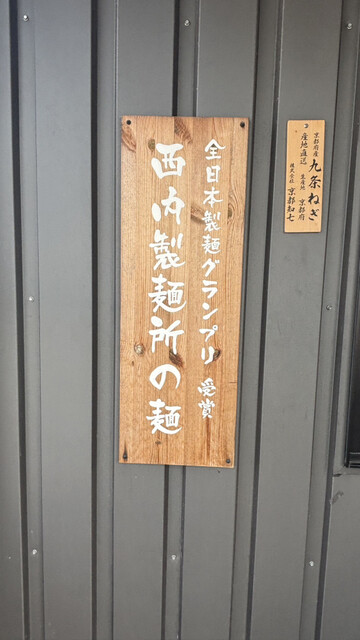 全日本製麺グランプリ 受賞
西内製麺所の麺
京都府産 九条ねぎ
産地直送 生産地 京都府
株式会社 京都知七